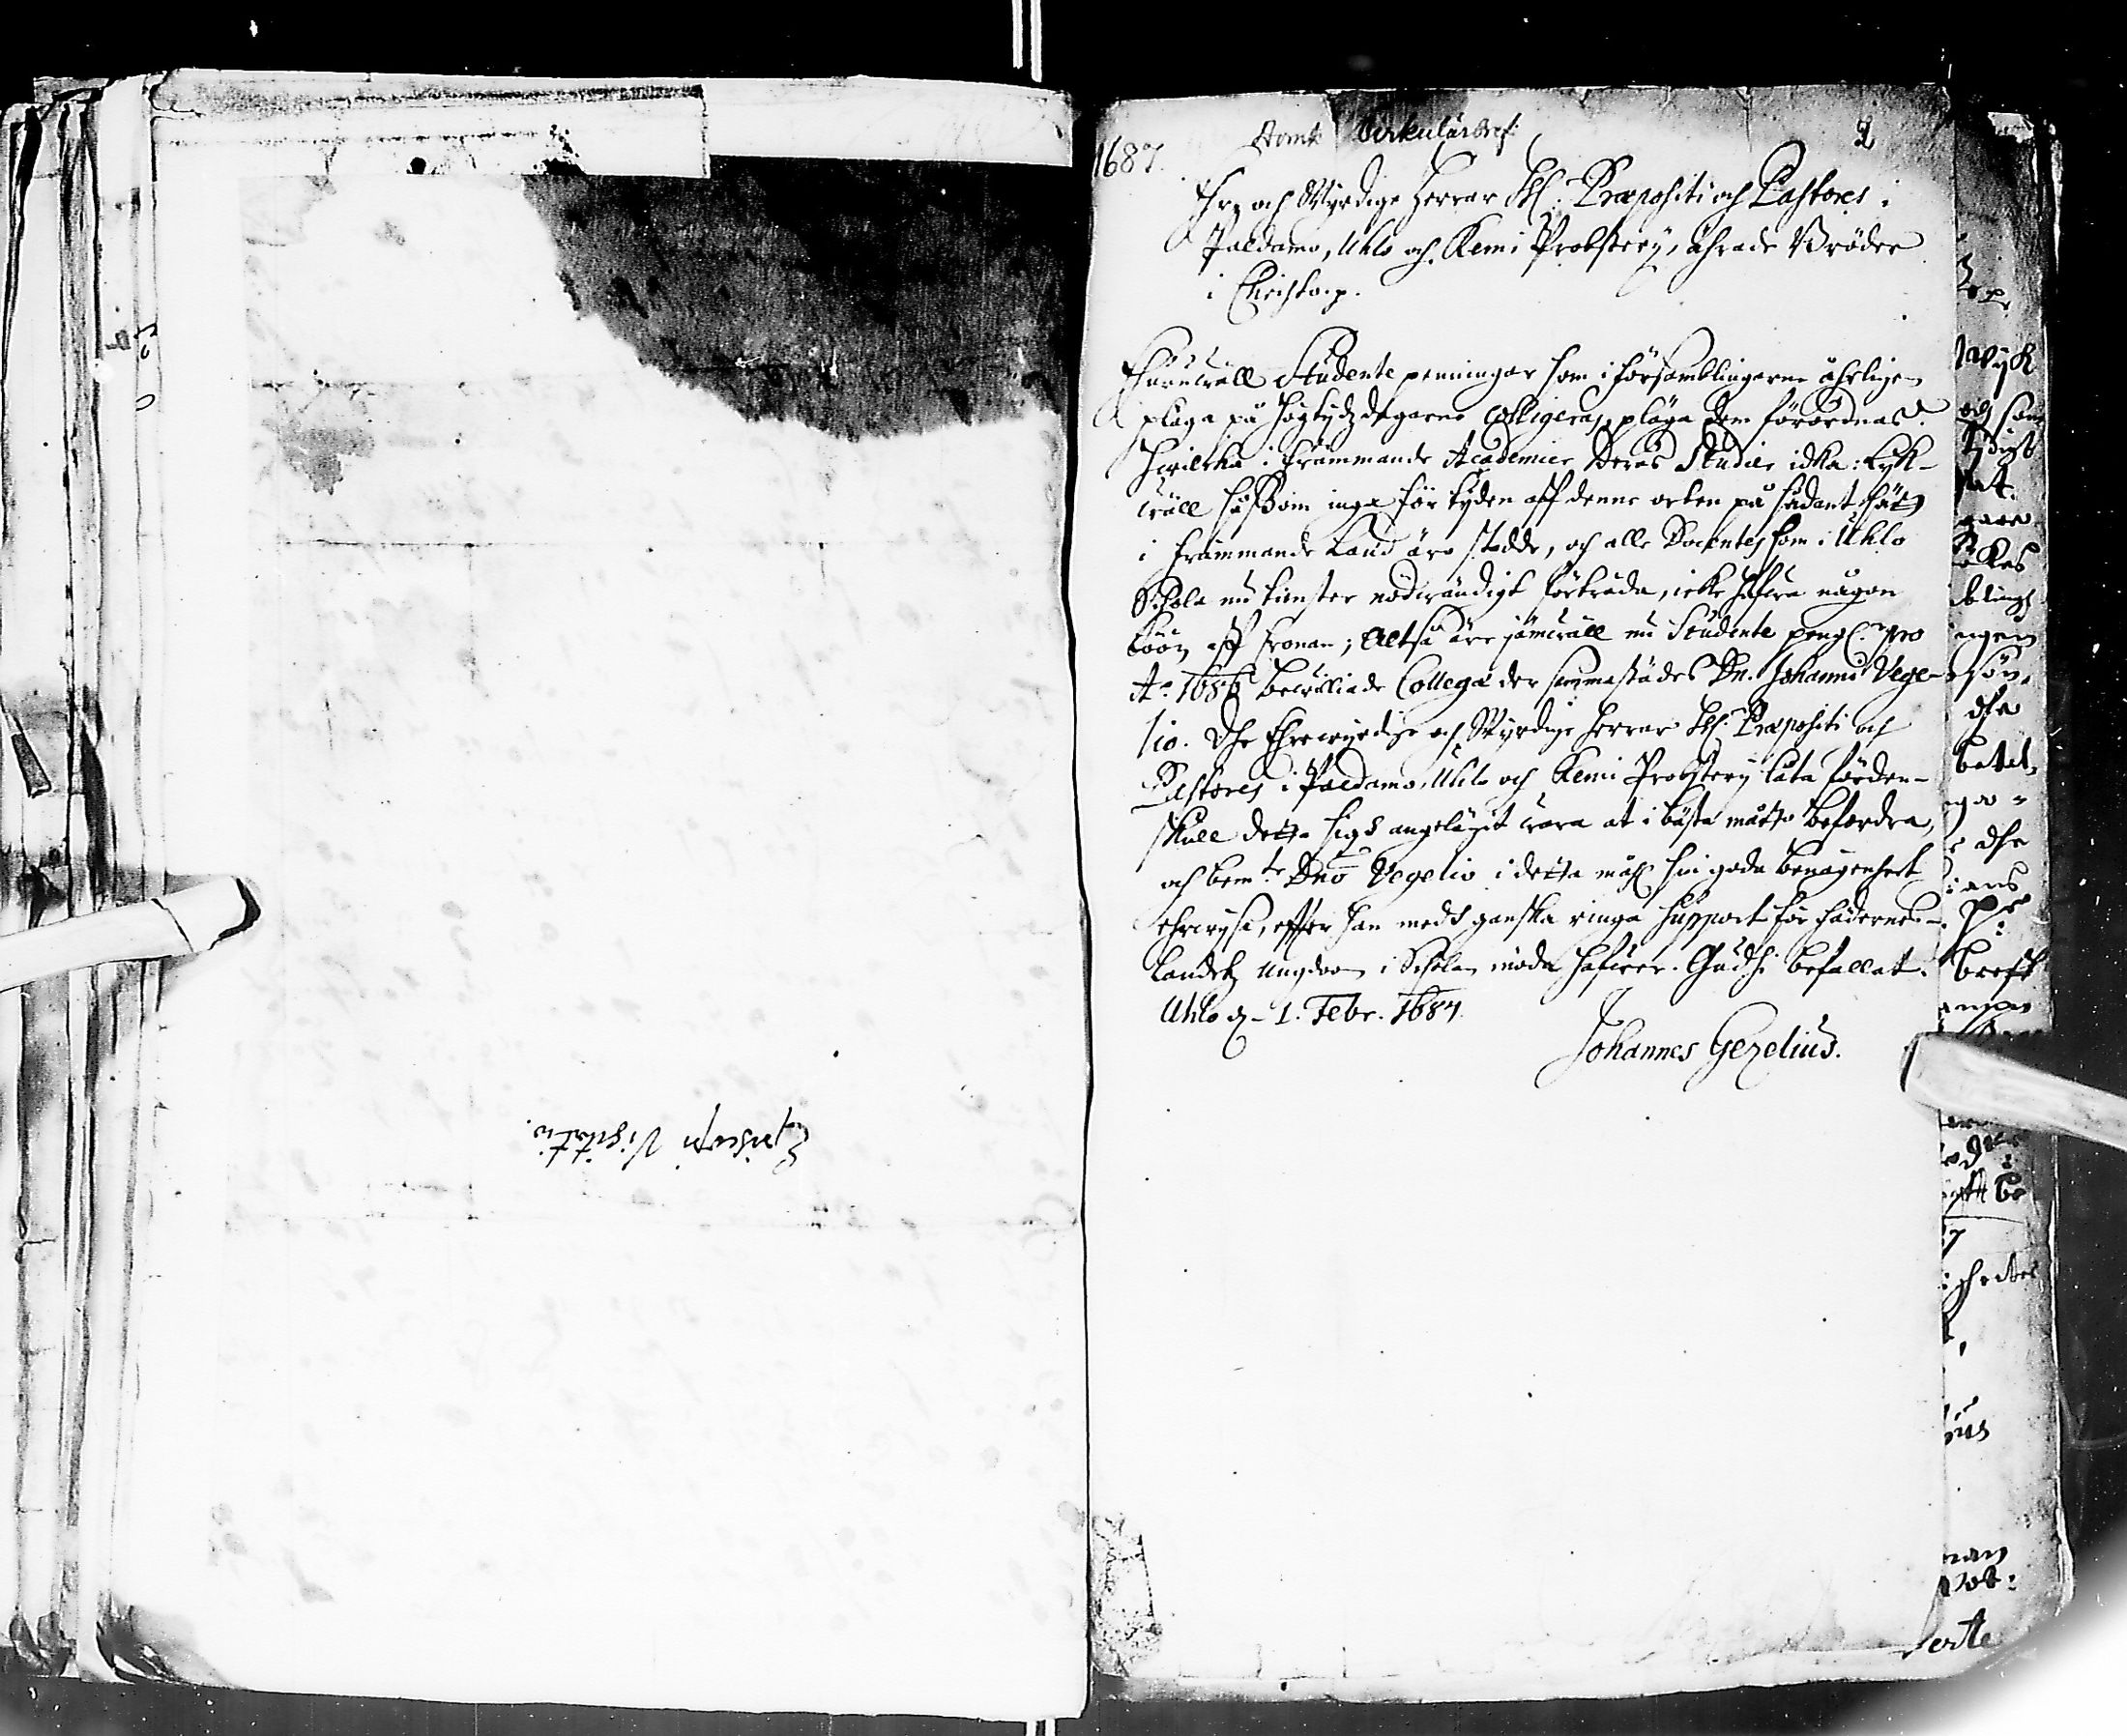 Episcopi Visitat:
1687.
Domk: Cirkulärbref:
2
Ehr: och Wyrdige Herrar HH. Præpositi och Pastores i
Paldamo, Uhlo och Kemi Probstery, ährade Bröder
i Christo. p.
Ehuruwäll Studente penningar som i församblingarne åhrligen
pläga på högtydzdagarne colligeras, pläga dem förordnas
hwilcka i främmande Academier deras Studier idka: lyk-
wäll såssom inga för tyden aff denne orten på sådant sätt
i främmande Land äro stedde, och alle Docentes som i Uhlo
Schola nu tienster nödwändigt förträda, icke hafwa någon
löön aff Cronan; Altså äre jämwäll nu Studente peng. pro
A:o 1686 bewilliade Collegæ der sammastädes Dn. Johanni Vege-
lio. Dhe Ehrewyrdige och Wyrdige Herrar HH. Præpositi och
Pastores i Paldamo, Uhlo och Kemi Probstery låta förden-
skull detta sigh angelägit wara at i bästa måtto befordra,
och bem:te Dno Vegelio i detta måhl sin goda benägenheet
ehrwysa, effter han medh ganska ringa support för fädernes-
landetz ungdom i Scholan möda hafwer. Gudhi befallat.
Uhlo d. 1. Febr. 1687.
Johannes Gezelius.